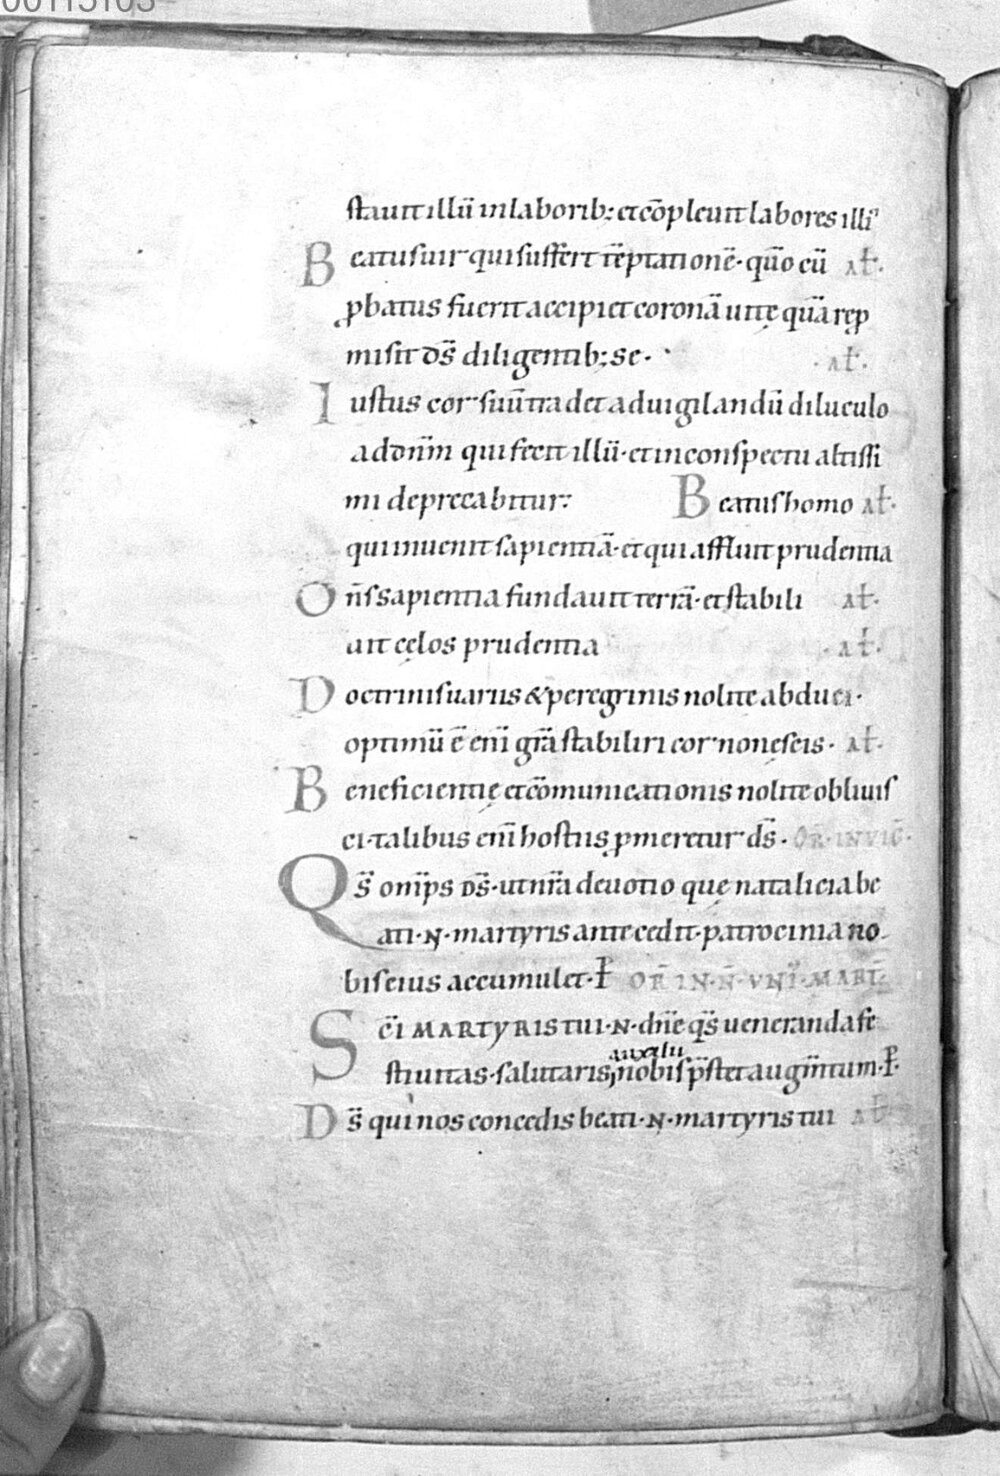 stauit illū in laborib; et cōpleuit labores illi'
Beatus uir qui suffert tēptationē· qm̄o cū aƚ·
ꝓbatus fuerit accipiet coronā uitę quā rep
misit ds̄ diligentib; se· aƚ·
Iustus cor suū tradet ad uigilandū diluculo
ad dn̄m qui fecit illū· et in conspectu altissi
mi deprecabitur; Beatus homo aƚ·
qui inuenit sapientiā· et qui affluit prudentia
Dn̄s sapientia fundauit terrā· et stabili aƚ·
uit cęlos prudentia aƚ·
Doctrinis uariis & peregrinis nolite abduci·
optimū ē enī gr̄a stabiliri cor non ęscis· aƚ·
Beneficientię et cōmunicationis nolite obliuis
ci· talibus enī hostiis ꝓmeretur ds̄· OR̄· IN VIG̅·
Qs̄ om̄ps ds̄· ut nr̄a deuotio quę natalicia be
ati· N· martyris antecedit· patrocinia no
bis eius accumulet· P̄ OR̄ IN· N̄· VNĪ· MART̄·
Sc̄i MARTYRIS tui· N· dn̄e qs̄ ueneranda fe
auxilii
stiuitas· salutaris nobis p̄stet augm̄tum· P̄·
Ds̄ qui nos concedis beati· N· martyris tui aƚ·